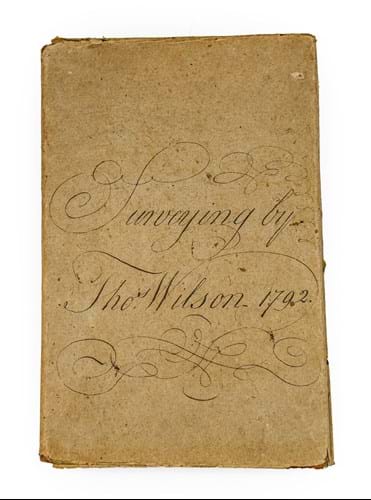 Surveying by
Thoˢ Wilson 1792.